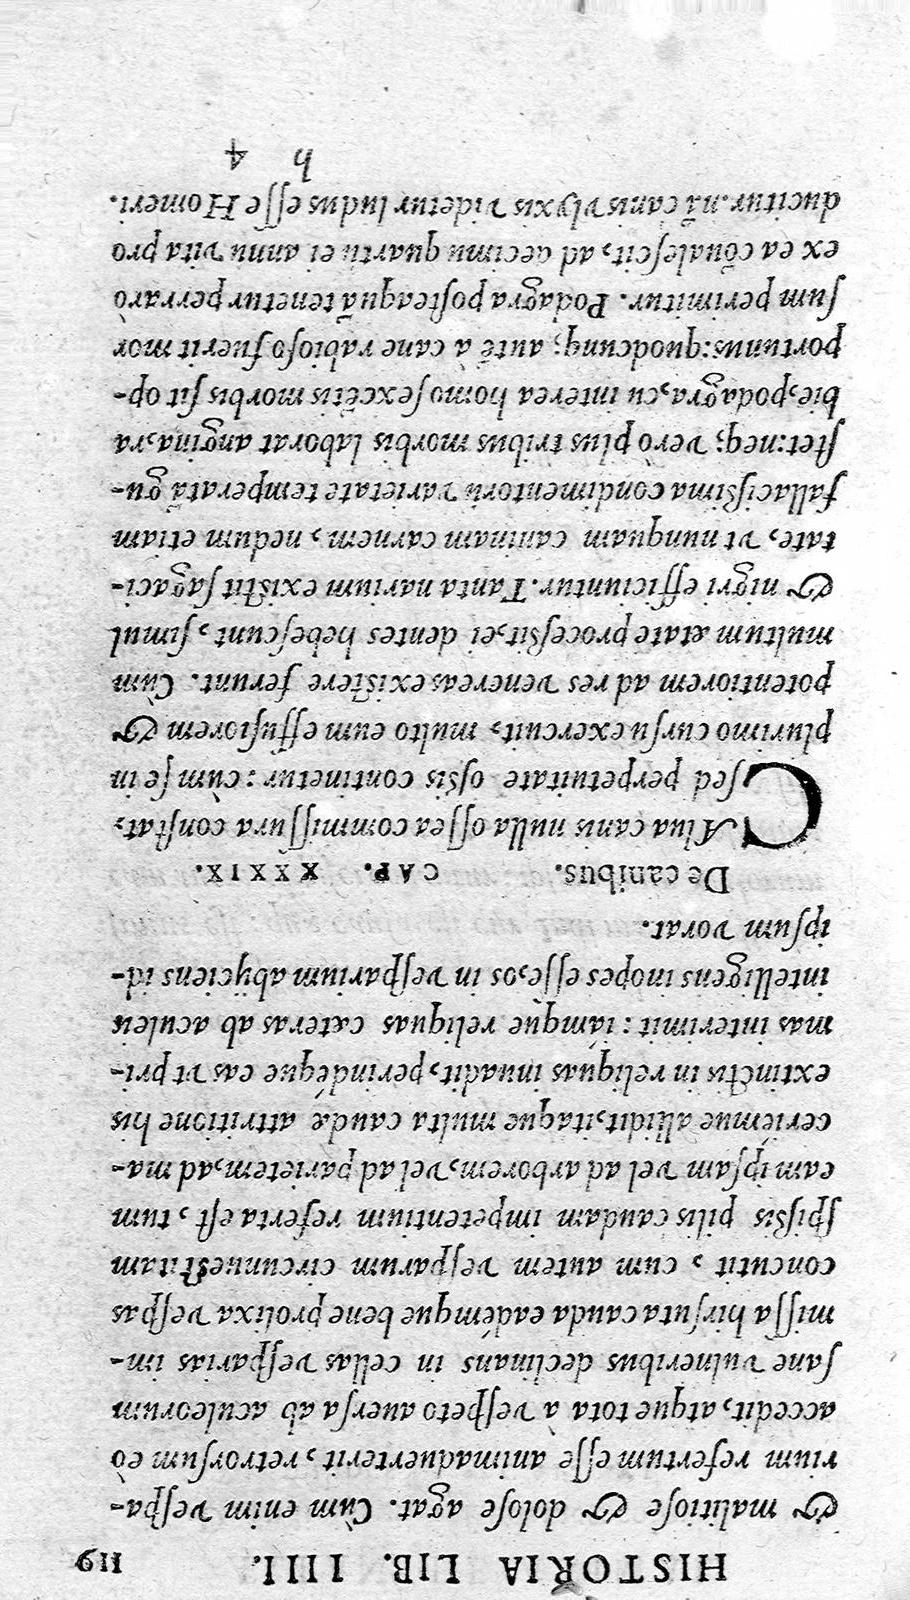 HISTORIA LIB. IIII. 119
& malitiose & dolose agat. Cùm enim vespa-
rium refertum esse animaduerterit, retrorsum eò
accedit, atque tota à vespeto auersa ab aculeorum
sane vulneribus declinans in cellas vesparias im-
missa hirsuta cauda eadémque bene prolixa vespas
concutit, cum autem vesparum circunuestitam
spißis pilis caudam impetentium referta est, tum
eam ipsam vel ad arborem, vel ad parietem, ad ma-
ceriémue allidit, itaque multa caudæ attritione his
extinctis in reliquas inuadit, perindéque eas vt pri-
mas interimit: iámque reliquas cæteras ab aculeis
intelligens inopes esse, os in vesparium abijciens id-
ipsum vorat.
De canibus. CAP. XXXIX.
CAlua canis nulla ossea commissura constat,
sed perpetuitate oßis continetur: cùm se in
plurimo cursu exercuit, multo eum effusiorem &
potentiorem ad res venereas existere ferunt. Cùm
multum ætate proceßit, ei dentes hebescunt, simul
& nigri efficiuntur. Tanta narium existit sagaci-
tate, vt nunquam caninam carnem, nedum etiam
fallacißima condimentorū varietate temperatā gu-
stet: neq; verò plus tribus morbis laborat angina, ra
bie, podagra, cū interea homo sexcētis morbis sit op-
portunus: quodcunq; autē à cane rabioso fuerit mor
sum perimitur. Podagra posteaquā tenetur perrarò
ex ea cōualescit, ad decimū quartū ei annū vita pro
ducitur. nā canis Vlyxis videtur ludus esse Homeri.
h 4